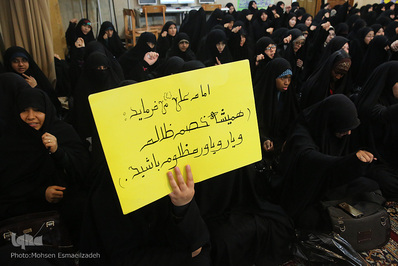 امام علی (ع) می فرماید:
(همیشه خصم ظالم
و یار و یاور مظلوم باشید.)
iqna
Photo:Mohsen Esmaeilzadeh